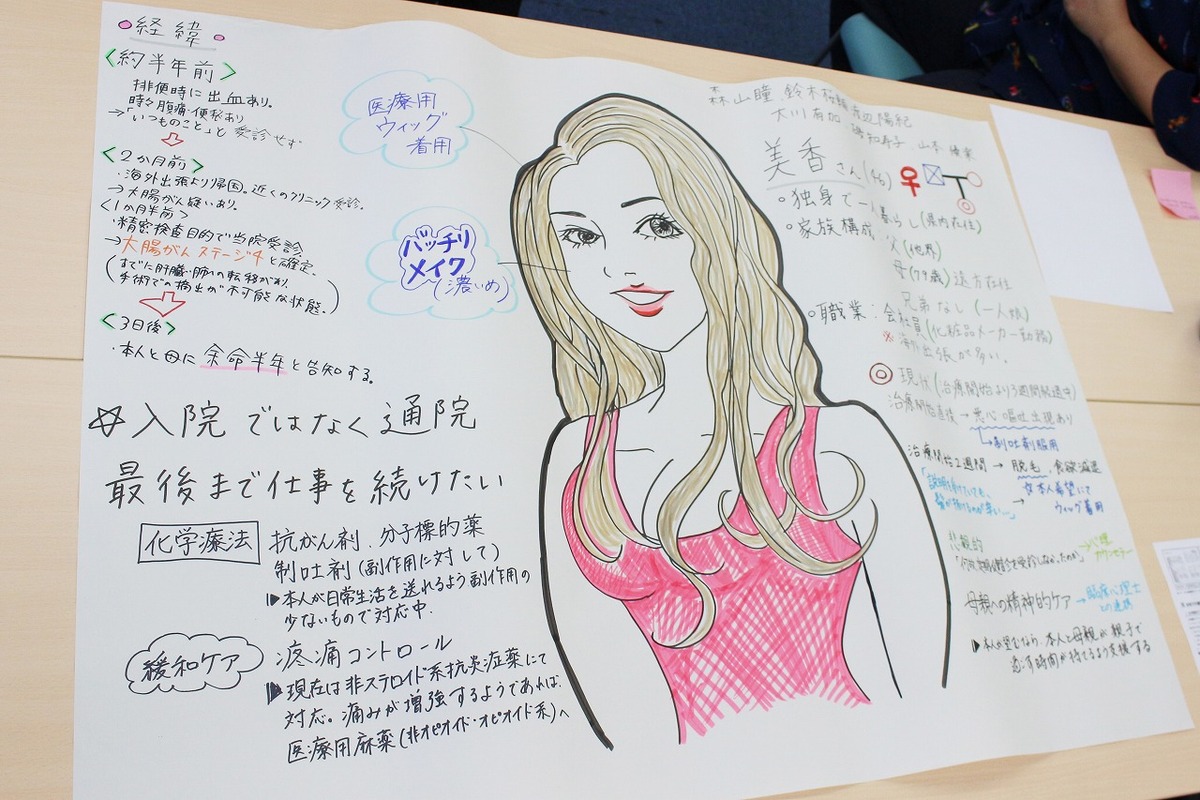 経緯
<約半年前>
排便時に出血あり。
時々腹痛・便秘あり
→「いつものこと」と受診せず
<2か月前>
・海外出張より帰国。近くのクリニック受診。
→大腸がん疑いあり。
<1か月半前>
・精密検査目的で当院受診。
→大腸がんステージ4と確定。
(すでに肝臓・肺への転移があり、
手術での摘出が不可能な状態。)
<3日後>
・本人と母に余命半年と告知する。
☆入院ではなく通院
最後まで仕事を続けたい
化学療法 抗がん剤、分子標的薬
制吐剤(副作用に対して)
▶本人が日常生活を送れるよう副作用の
少ないもので対応中.
緩和ケア 疼痛コントロール
▶現在は非ステロイド系抗炎症薬にて
対応。痛みが増強するようであれば、
医療用麻薬(非オピオイド・オピオイド系)へ
医療用
ウィッグ
着用
バッチリ
メイク
(濃いめ)
森山瞳、鈴木 陽紀
大川有加 山本
美香さん(46)
○独身で一人暮らし(県内在住)
○家族構成 父(他界)
母(79歳)遠方在住
兄弟なし(一人娘)
○職業:会社員(化粧品メーカー勤務)
※海外出張が多い。
◎現状(治療開始より3週間経過中)
治療開始直後→悪心・嘔吐出現あり
→制吐剤服用
治療開始2週間→脱毛、食欲減退
→本人希望にて
ウィッグ着用
悲観的
→心理カウンセラー
母親への精神的ケア→臨床心理士
との連携
▶本人が望むなら、本人と母親が親子で
過ごす時間が持てるよう支援する